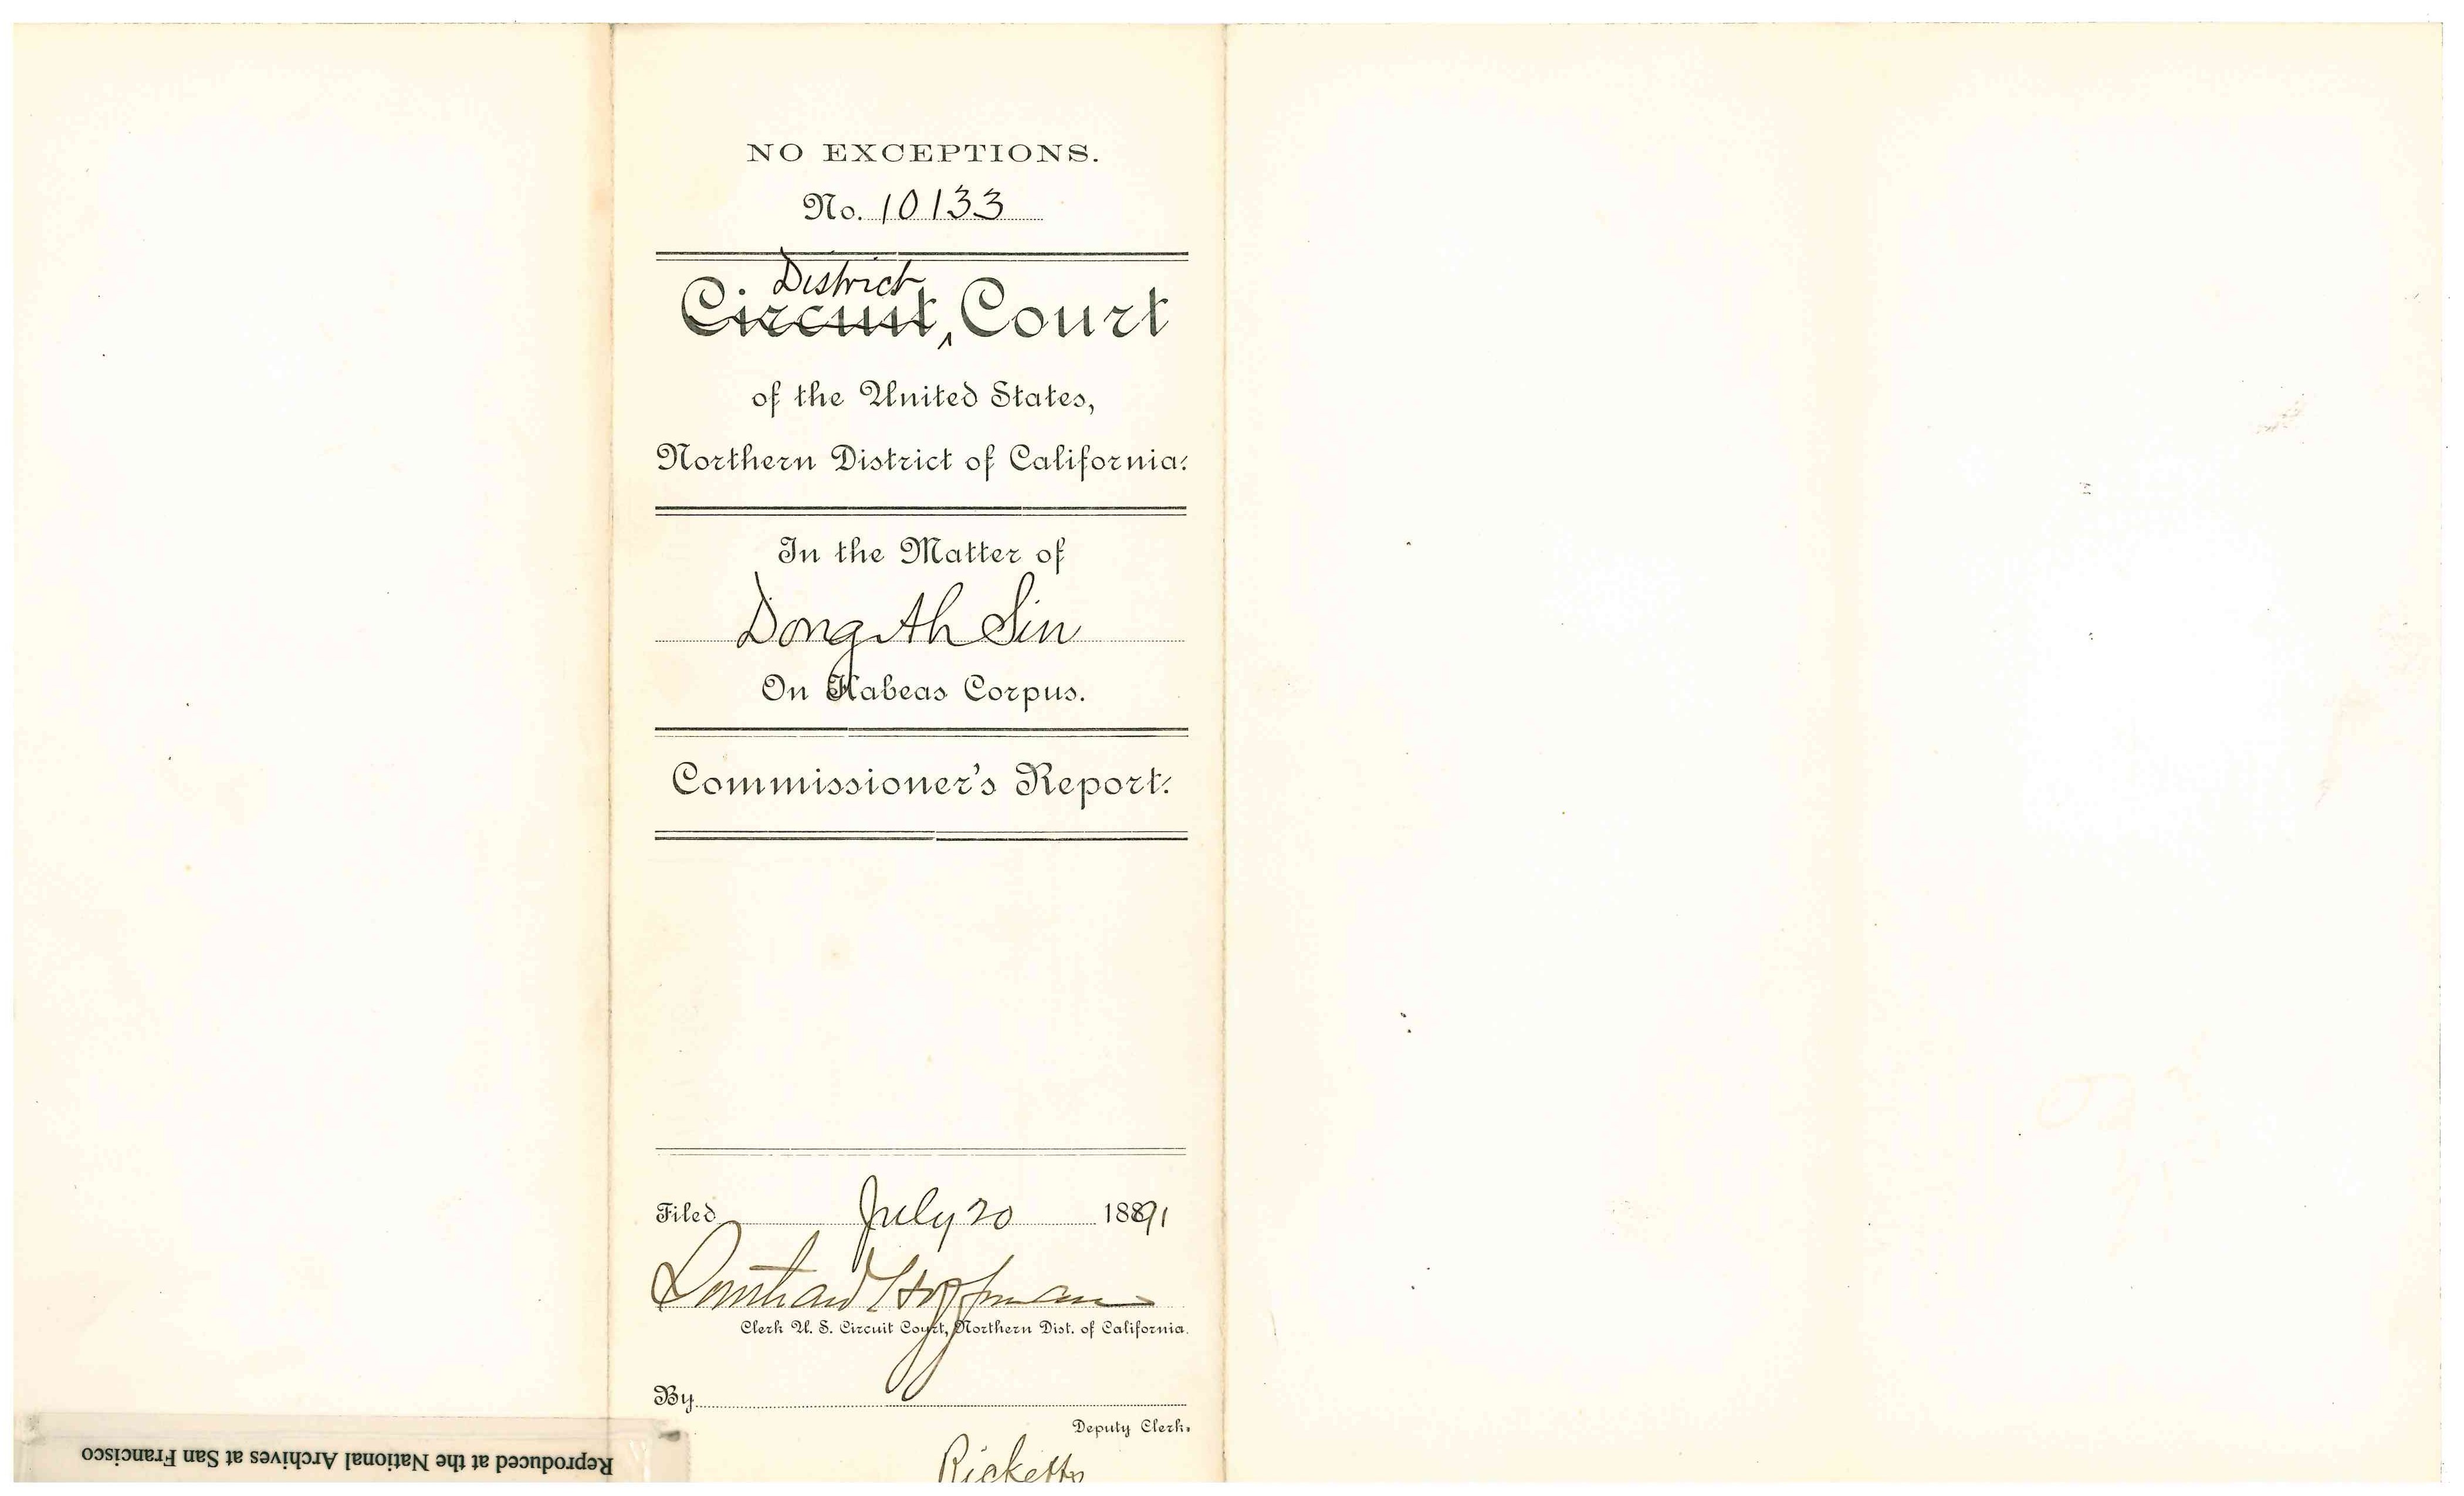 NO EXCEPTIONS.
No. 10133
District
Circuit, Court
of the United States,
Northern District of California.
In the Matter of
Dong Ah Sin
On Habeas Corpus.
Commissioner's Report.
Filed July 20 1891
Southard Hoffman
Clerk U. S. Circuit Court, Northern Dist. of California.
By
Deputy Clerk.
Ricketts
Reproduced at the National Archives at San Francisco